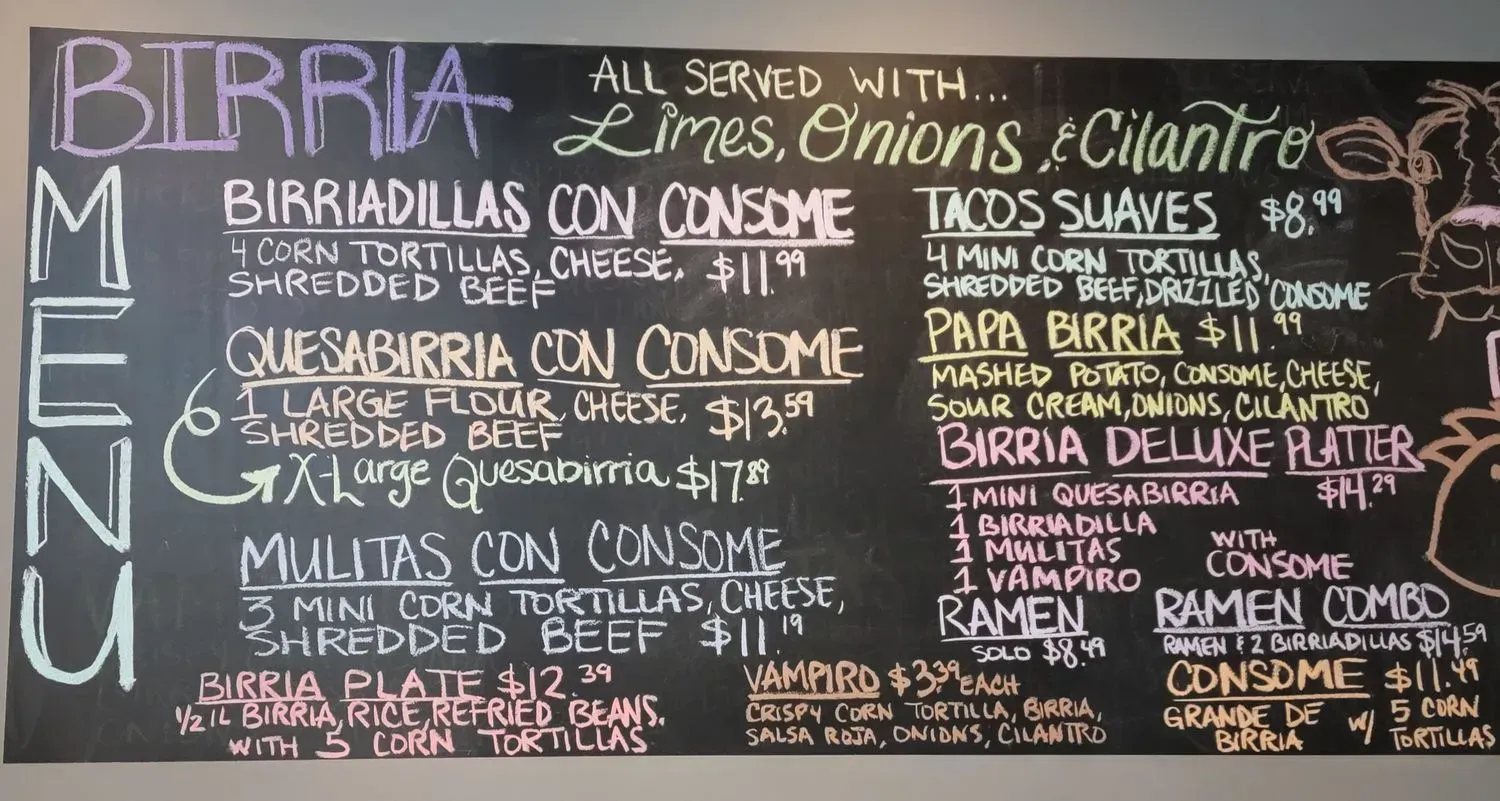 BIRRIA
MENU
ALL SERVED WITH...
Limes, Onions, & Cilantro
BIRRIADILLAS CON CONSOME
4 CORN TORTILLAS, CHEESE, $11.99
SHREDDED BEEF
QUESABIRRIA CON CONSOME
1 LARGE FLOUR, CHEESE, $13.59
SHREDDED BEEF
X-Large Quesabirria $17.89
MULITAS CON CONSOME
3 MINI CORN TORTILLAS, CHEESE,
SHREDDED BEEF $11.19
BIRRIA PLATE $12.39
1/2 lL BIRRIA, RICE, REFRIED BEANS.
WITH 5 CORN TORTILLAS
VAMPIRO $3.39 EACH
CRISPY CORN TORTILLA, BIRRIA,
SALSA ROJA, ONIONS, CILANTRO
TACOS SUAVES $8.99
4 MINI CORN TORTILLAS,
SHREDDED BEEF, DRIZZLED CONSOME
PAPA BIRRIA $11.99
MASHED POTATO, CONSOME, CHEESE,
SOUR CREAM, ONIONS, CILANTRO
BIRRIA DELUXE PLATTER
1 MINI QUESABIRRIA $14.29
1 BIRRIADILLA
1 MULITAS
1 VAMPIRO
WITH
CONSOME
RAMEN
SOLO $8.49
RAMEN COMBO
RAMEN & 2 BIRRIADILLAS $14.59
CONSOME $11.49
GRANDE DE
BIRRIA
W/ 5 CORN
TORTILLAS